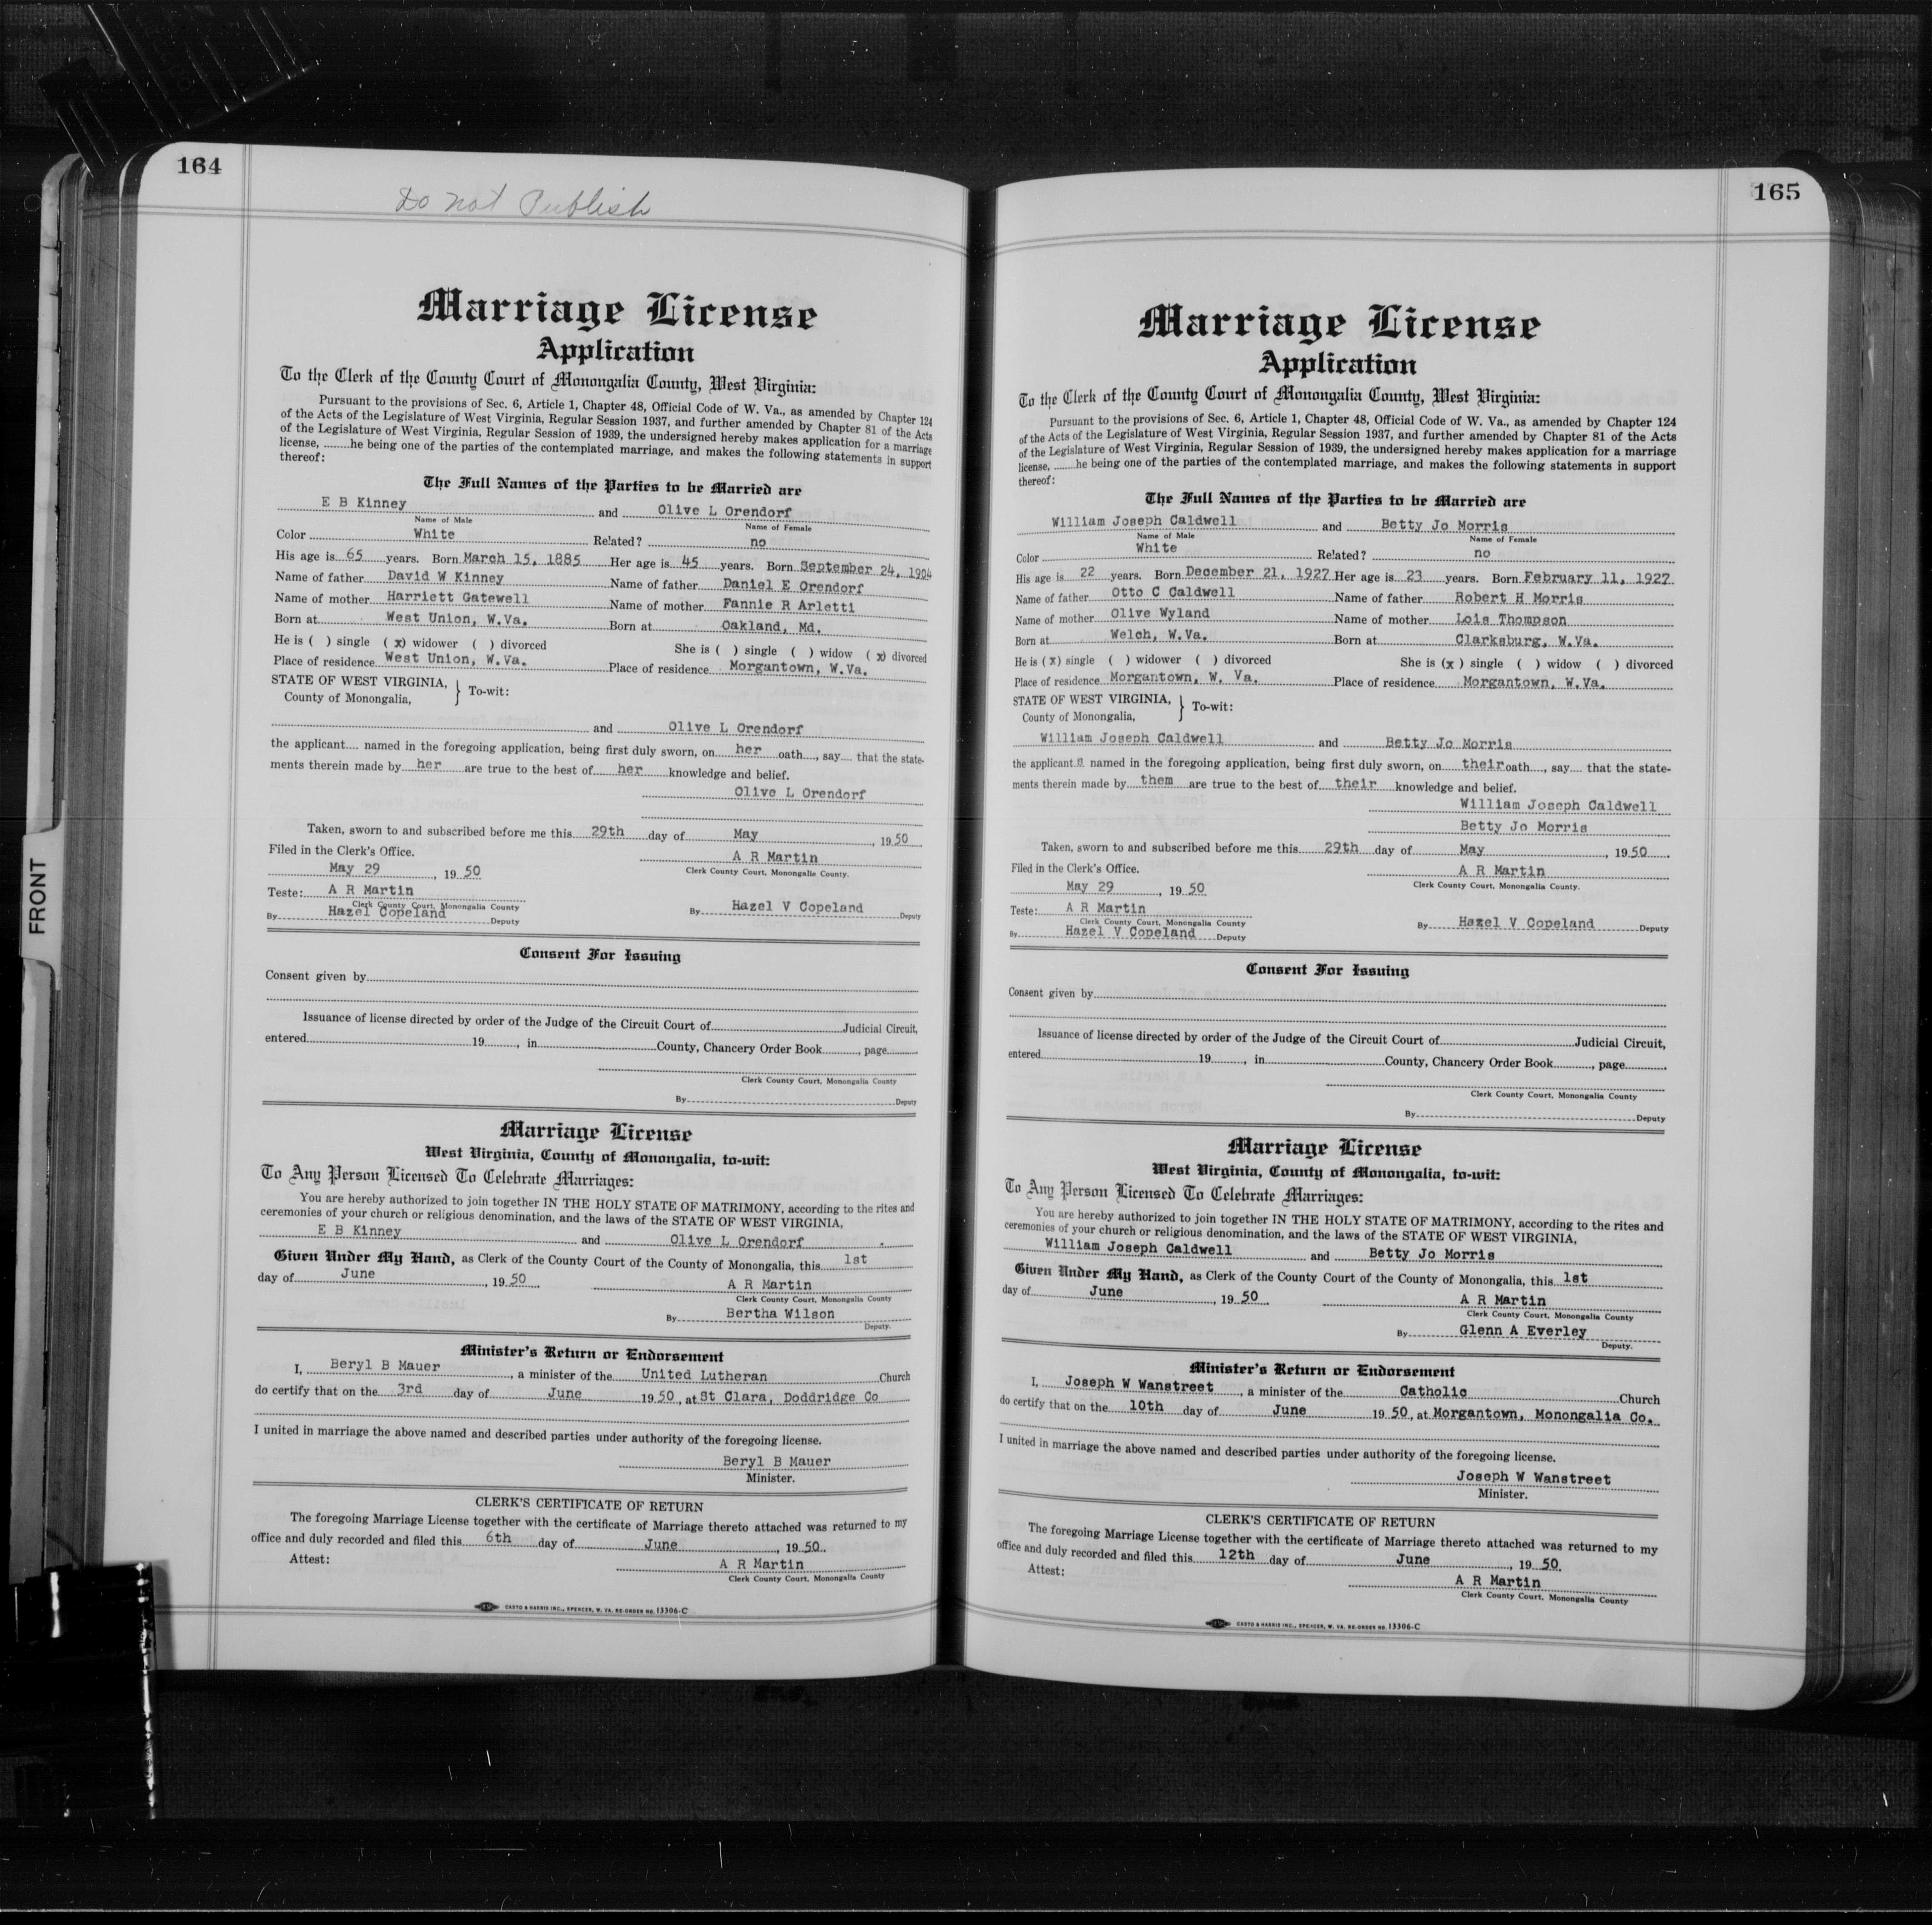 164
Do not Publish
Marriage License
Application
To the Clerk of the County Court of Monongalia County, West Virginia:
Pursuant to the provisions of Sec. 6, Article 1, Chapter 48, Official Code of W. Va., as amended by Chapter 124
of the Acts of the Legislature of West Virginia, Regular Session 1937, and further amended by Chapter 81 of the Acts
of the Legislature of West Virginia, Regular Session of 1939, the undersigned hereby makes application for a marriage
license, ........he being one of the parties of the contemplated marriage, and makes the following statements in support
thereof:
The Full Names of the Parties to be Married are
E B Kinney and Olive L Orendorf
Name of Male Name of Female
Color White Related? no
His age is 65 years. Born March 15, 1885 Her age is 45 years. Born September 24, 1904
Name of father David W Kinney Name of father Daniel E Orendorf
Name of mother Harriett Gatewell Name of mother Fannie R Arletti
Born at West Union, W.Va. Born at Oakland, Md.
He is ( ) single (x) widower ( ) divorced She is ( ) single ( ) widow (x) divorced
Place of residence West Union, W.Va. Place of residence Morgantown, W.Va.
STATE OF WEST VIRGINIA,
County of Monongalia, } To-wit:
and Olive L Orendorf
the applicant.... named in the foregoing application, being first duly sworn, on her oath...., say.... that the state-
ments therein made by her are true to the best of her knowledge and belief.
Olive L Orendorf
Taken, sworn to and subscribed before me this 29th day of May, 1950
Filed in the Clerk's Office. A R Martin
May 29, 19 50 Clerk County Court, Monongalia County.
Teste: A R Martin
Clerk County Court, Monongalia County
By Hazel Copeland Deputy By Hazel V Copeland Deputy
Consent For Issuing
Consent given by
Issuance of license directed by order of the Judge of the Circuit Court of Judicial Circuit,
entered 19 , in County, Chancery Order Book , page
Clerk County Court, Monongalia County
By Deputy
Marriage License
West Virginia, County of Monongalia, to-wit:
To Any Person Licensed To Celebrate Marriages:
You are hereby authorized to join together IN THE HOLY STATE OF MATRIMONY, according to the rites and
ceremonies of your church or religious denomination, and the laws of the STATE OF WEST VIRGINIA,
E B Kinney and Olive L Orendorf .
Given Under My Hand, as Clerk of the County Court of the County of Monongalia, this 1st
day of June, 19 50 A R Martin
Clerk County Court, Monongalia County
By Bertha Wilson
Deputy.
Minister's Return or Endorsement
I, Beryl B Mauer, a minister of the United Lutheran Church
do certify that on the 3rd day of June 19 50, at St Clara, Doddridge Co
I united in marriage the above named and described parties under authority of the foregoing license.
Beryl B Mauer
Minister.
CLERK'S CERTIFICATE OF RETURN
The foregoing Marriage License together with the certificate of Marriage thereto attached was returned to my
office and duly recorded and filed this 6th day of June, 19 50.
Attest: A R Martin
Clerk County Court, Monongalia County
CASTO & HARRIS INC., SPENCER, W. VA. RE-ORDER NO. 13306-C
165
Marriage License
Application
To the Clerk of the County Court of Monongalia County, West Virginia:
Pursuant to the provisions of Sec. 6, Article 1, Chapter 48, Official Code of W. Va., as amended by Chapter 124
of the Acts of the Legislature of West Virginia, Regular Session 1937, and further amended by Chapter 81 of the Acts
of the Legislature of West Virginia, Regular Session of 1939, the undersigned hereby makes application for a marriage
license, ........he being one of the parties of the contemplated marriage, and makes the following statements in support
thereof:
The Full Names of the Parties to be Married are
William Joseph Caldwell and Betty Jo Morris
Name of Male Name of Female
Color White Related? no
His age is 22 years. Born December 21, 1927 Her age is 23 years. Born February 11, 1927
Name of father Otto C Caldwell Name of father Robert H Morris
Name of mother Olive Wyland Name of mother Lois Thompson
Born at Welch, W.Va. Born at Clarksburg, W.Va.
He is (x) single ( ) widower ( ) divorced She is (x) single ( ) widow ( ) divorced
Place of residence Morgantown, W. Va. Place of residence Morgantown, W.Va.
STATE OF WEST VIRGINIA,
County of Monongalia, } To-wit:
William Joseph Caldwell and Betty Jo Morris
the applicant named in the foregoing application, being first duly sworn, on their oath...., say.... that the state-
ments therein made by them are true to the best of their knowledge and belief.
William Joseph Caldwell
Betty Jo Morris
Taken, sworn to and subscribed before me this 29th day of May, 1950
Filed in the Clerk's Office. A R Martin
May 29, 19 50 Clerk County Court, Monongalia County.
Teste: A R Martin
Clerk County Court, Monongalia County
By Hazel V Copeland Deputy By Hazel V Copeland Deputy
Consent For Issuing
Consent given by
Issuance of license directed by order of the Judge of the Circuit Court of Judicial Circuit,
entered 19 , in County, Chancery Order Book , page
Clerk County Court, Monongalia County
By Deputy
Marriage License
West Virginia, County of Monongalia, to-wit:
To Any Person Licensed To Celebrate Marriages:
You are hereby authorized to join together IN THE HOLY STATE OF MATRIMONY, according to the rites and
ceremonies of your church or religious denomination, and the laws of the STATE OF WEST VIRGINIA,
William Joseph Caldwell and Betty Jo Morris
Given Under My Hand, as Clerk of the County Court of the County of Monongalia, this 1st
day of June, 19 50 A R Martin
Clerk County Court, Monongalia County
By Glenn A Everley
Deputy.
Minister's Return or Endorsement
I, Joseph W Wanstreet, a minister of the Catholic Church
do certify that on the 10th day of June 19 50, at Morgantown, Monongalia Co.
I united in marriage the above named and described parties under authority of the foregoing license.
Joseph W Wanstreet
Minister.
CLERK'S CERTIFICATE OF RETURN
The foregoing Marriage License together with the certificate of Marriage thereto attached was returned to my
office and duly recorded and filed this 12th day of June, 19 50.
Attest: A R Martin
Clerk County Court, Monongalia County
CASTO & HARRIS INC., SPENCER, W. VA. RE-ORDER NO. 13306-C
FRONT